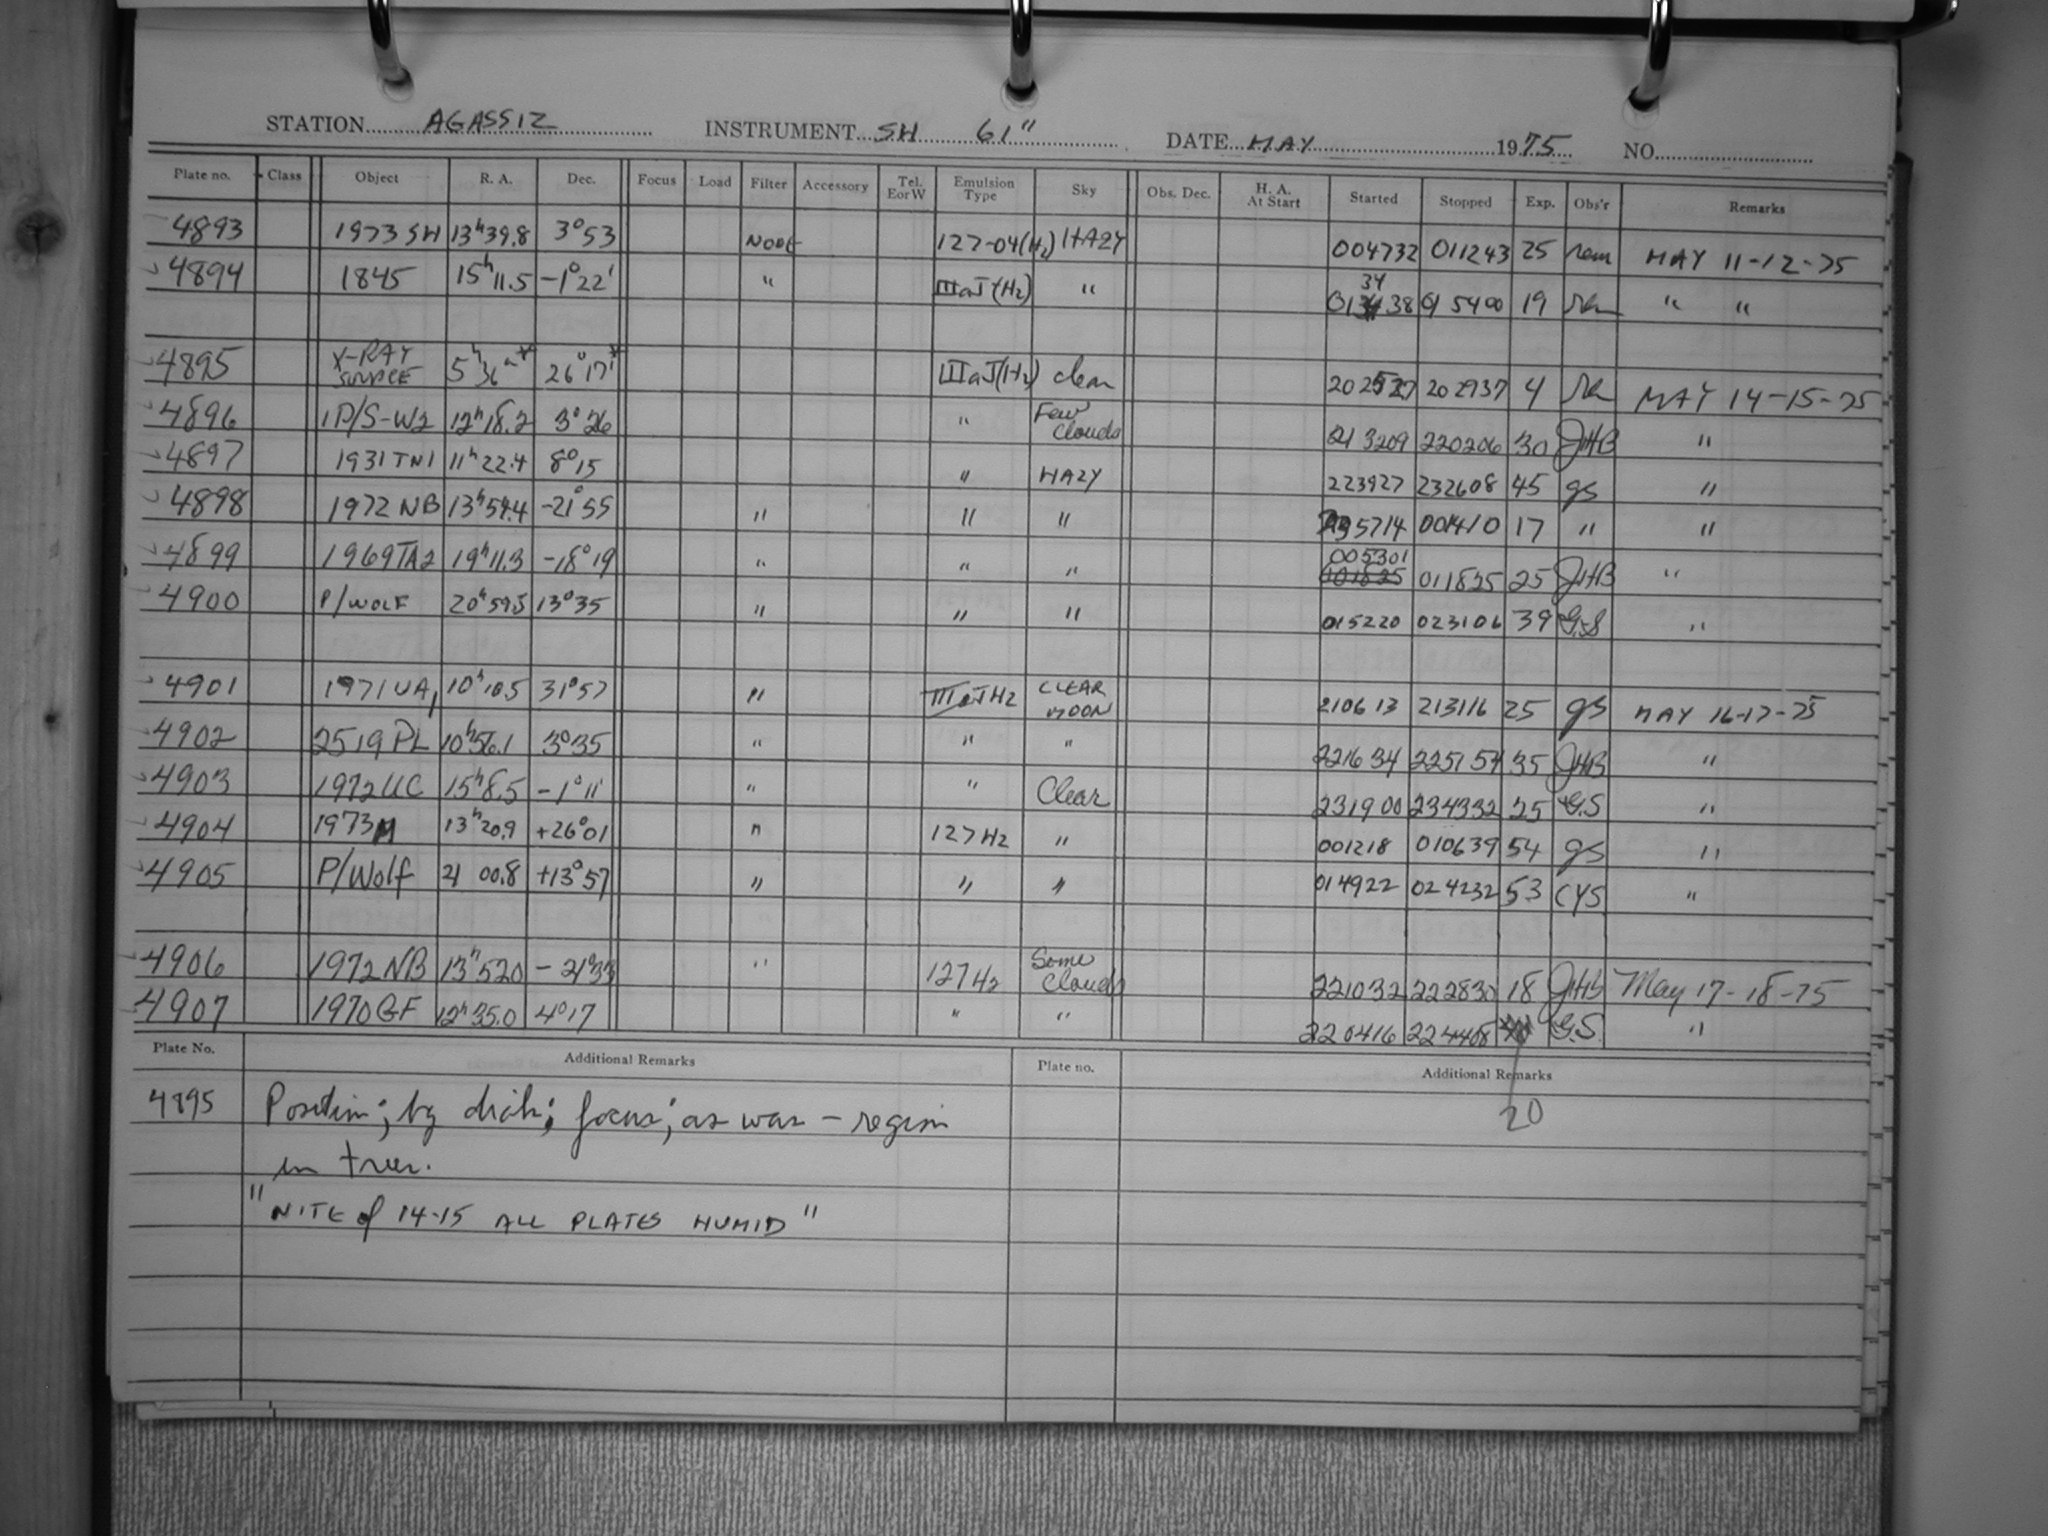 STATION AGASSIZ INSTRUMENT SH 61" DATE MAY 1975 NO.
Plate no. Class Object R. A. Dec. Focus Load Filter Accessory Tel. E or W Emulsion Type Sky Obs. Dec. H. A. At Start Started Stopped Exp. Obs'r Remarks
4893 1973 SH 13h39.8 3°53 NONE 127-04(H2) HAZY 004732 011243 25 rem MAY 11-12-75
4894 1845 15h11.5 -1°22' " IIIaJ(H2) " 34 38 015400 19 " "
4895 X-RAY SOURCE 5h36m* 26°17'* IIIaJ(H2) clear 202937 4 MAY 14-15-75
4896 P/S-W2 12h18.2 3°26 " Few Clouds 213209 220206 30 JHB "
4897 1931 TN1 11h22.4 8°15 " HAZY 223927 232608 45 gs "
4898 1972 NB 13h54.4 -21°55 " " " 5714 001410 17 " "
4899 1969TA2 19h11.3 -18°19 " " " 005301 011825 25 JHB "
4900 P/WOLF 20h59.5 13°35 " " " 015220 023106 39 G.S "
4901 1971 UA1 10h10.5 31°57 " IIIaJH2 CLEAR MOON 210613 213116 25 gs MAY 16-17-75
4902 2519 PL 10h56.1 3°35 " " " 221634 225154 35 JHB "
4903 1972 UC 15h8.5 -1°11' " " Clear 231900 234332 25 G.S "
4904 1973 13h20.9 +26°01 " 127H2 " 001218 010639 54 gs "
4905 P/Wolf 21 00.8 +13°57 " " " 014922 024232 53 CYS "
4906 1972 NB 13h52.0 -21°33 " 127H2 Some Clouds 221032 222830 18 JHB May 17-18-75
4907 1970 GF 12h35.0 4°17 " " 220416 224408 G.S. "
Plate No. Additional Remarks Plate no. Additional Remarks
4895 Position; by dials; focus; as was – region
20
in trees.
"NITE of 14-15 ALL PLATES HUMID"